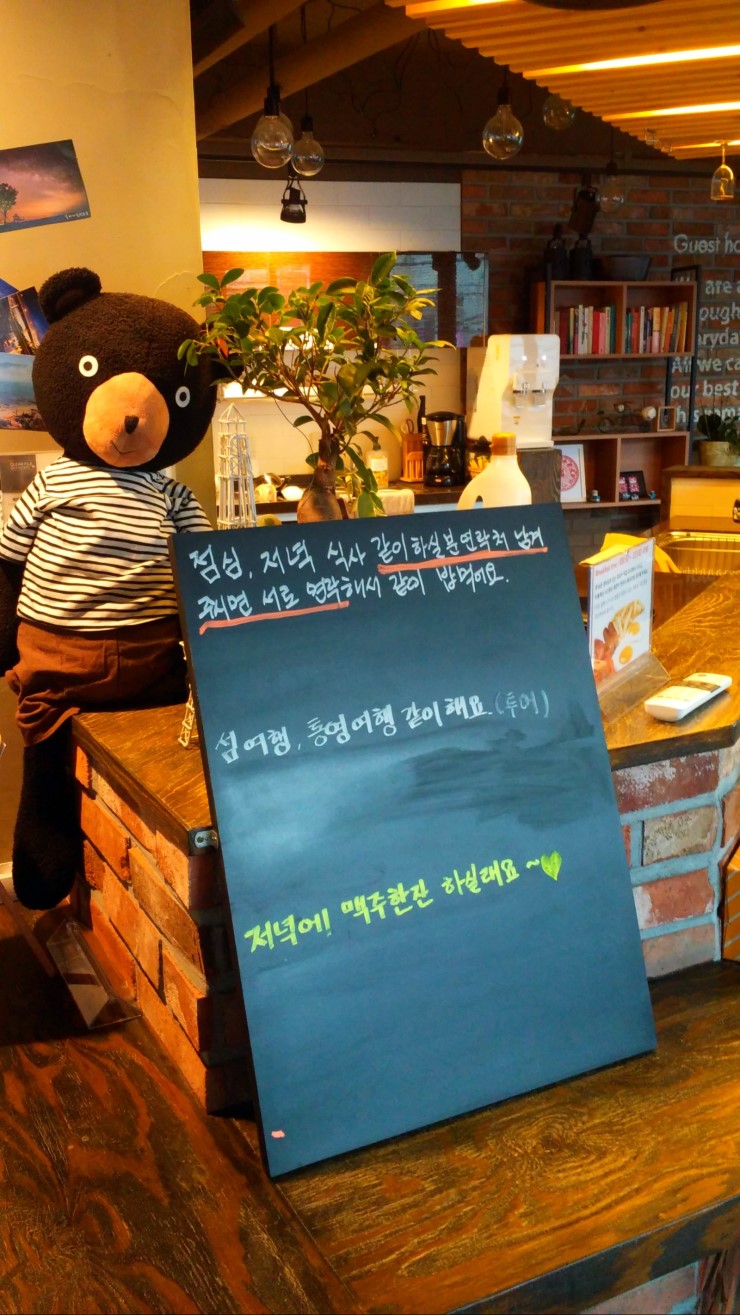 점심, 저녁 식사 같이하실분 연락처 남겨
주시면 서로 연락해서 같이 밥먹어요.
섬여행, 통영여행 같이해요.(투어)
저녁에! 맥주한잔 하실래요~
Guest ho
are a
ough
aryda
we ca
our best